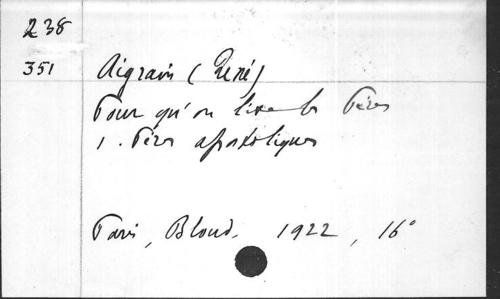 238
351 Aigrain (René)
Pour qu'on lise les Pères
1. Pères apostoliques
Paris, Bloud. 1922, 16°